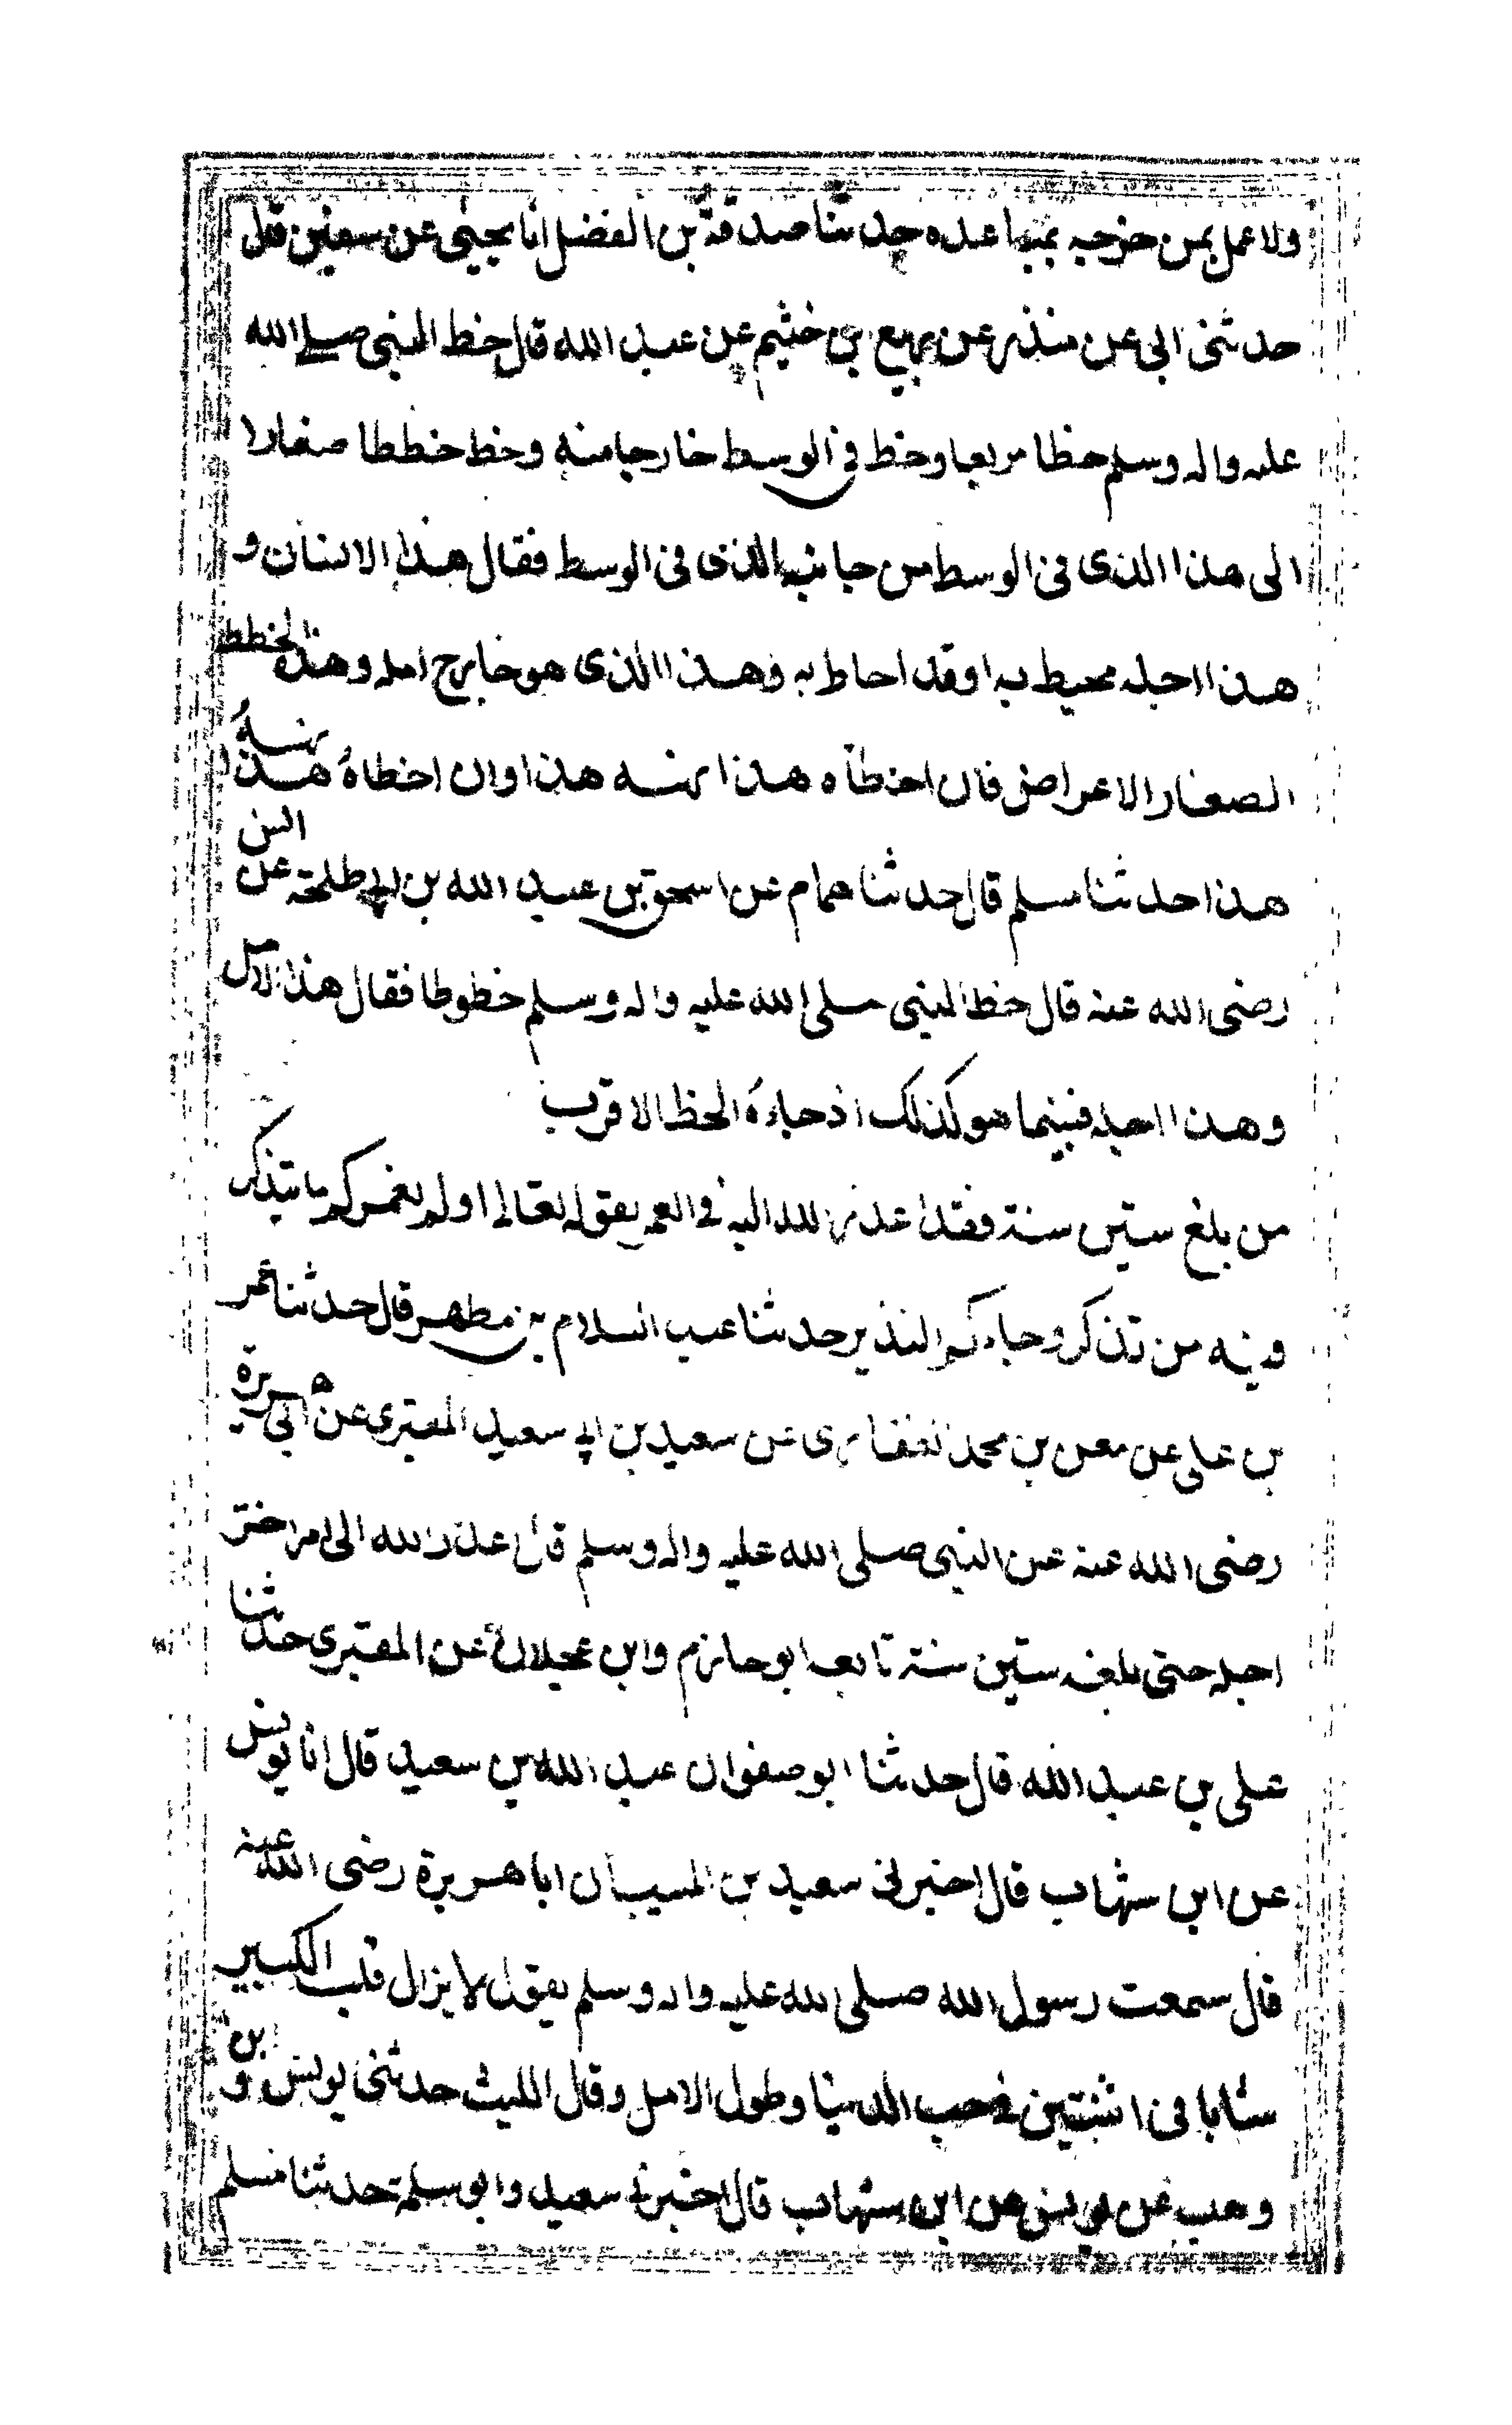 ولا عمل بمن حزجه بمباعده حدثنا صدقة بن الفضل انا يحيى عن سفين قال
حدثنى ابى عن منذر عن ربيع بن خثيم عن عبد الله قال خط النبى صلى الله
عليه واله وسلم خطا مربعا وخط فى الوسط خارجا منه وخط خططا صغارا
الى هذا الذى فى الوسط من جانبه الذى فى الوسط فقال هذا الانسان و
هذا اجله محيط به او قد احاط به وهذا الذى هو خارج امله وهذه الخطط
الصغار الاعراض فان اخطأه هذا نهسه هذا وان اخطاه هذا نهسهُ
هذا حدثنا مسلم قال حدثنا همام عن اسحق بن عبد الله بن ابى طلحة عن انس
رضى الله عنه قال خط النبى صلى الله عليه واله وسلم خطوطا فقال هذا الامل
وهذا اجله فبينما هو كذلك اذ جاءهُ الخط الاقرب
من بلغ ستين سنة فقد اعذر الله اليه فى العمر بقوله تعالى اولم نعمركم ما يتذكر
فيه من تذكر وجاءكم النذير حدثنا عبد السلام بن مطهر قال حدثنا عمر
بن على عن معن بن محمد الغفارى عن سعيد بن ابى سعيد المقبرى عن ابى هريرة
رضى الله عنه عن النبى صلى الله عليه واله وسلم قال اعذر الله الى امرا خر
اجله حتى بلغه ستين سنة تابعه ابو حازم وابن عجلان عن المقبرى حدثنا
على بن عبد الله قال حدثنا ابو صفوان عبد الله بن سعيد قال انا يونس
عن ابن شهاب قال اخبرنى سعيد بن المسيب ان ابا هريرة رضى الله عنه
قال سمعت رسول الله صلى الله عليه واله وسلم يقول لا يزال قلب الكبير
شابا فى اثنتين فى حب الدنيا وطول الامل وقال الليث حدثنى يونس و بن
وهب عن يونس عن ابن شهاب قال اخبرنى سعيد وابو سلمة حدثنا مسلم